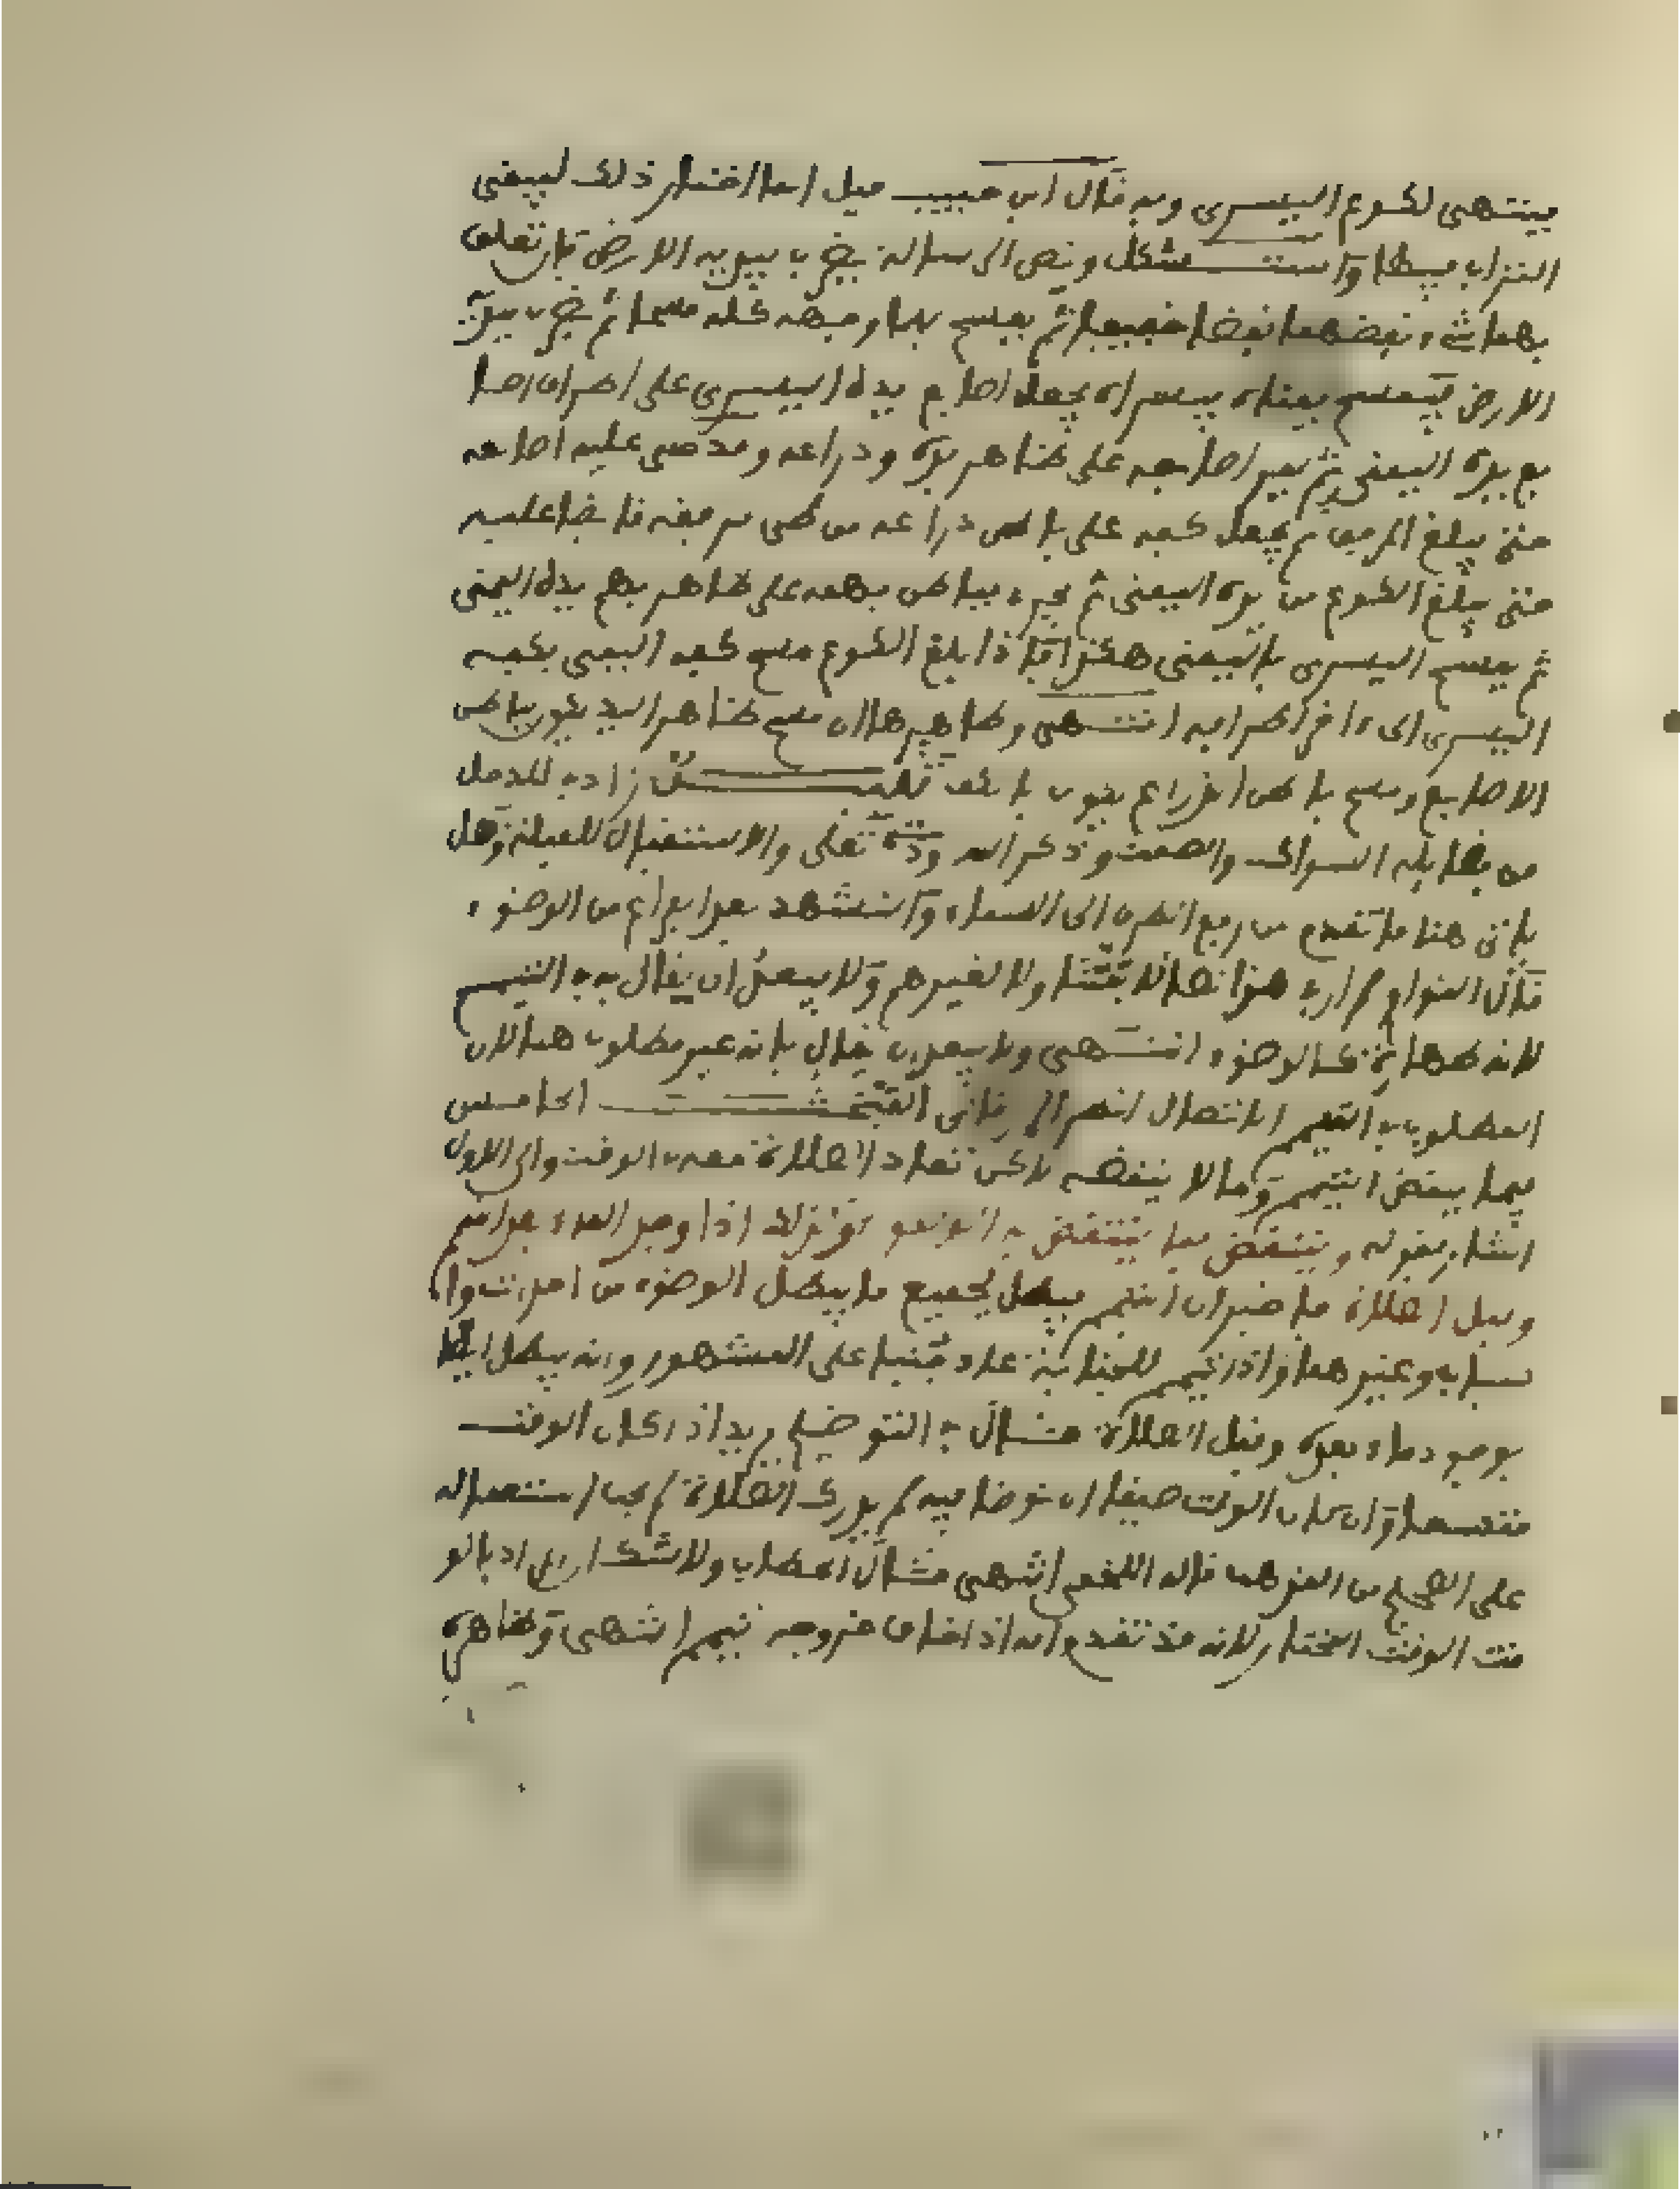 ينتهي لكوع اليسرى وبه قال ابن حبيب قيل انما اختار ذلك ليبقى
التراب فيها واستشكل ونص الرسالة يضرب بيديه الارض فان تعلق
بهما شيء نفضهما نفضا خفيفا ثم يمسح بهما وجهه كله مسحا ثم يضرب بيديه
الارض فيمسح يمناه بيسراه يجعل اصابع يده اليسرى على اطراف اصا
بع يده اليمنى ثم يمر اصابعه على ظاهر يده وذراعه وقد حنى عليه اصابعه
حتى يبلغ المرفق ثم يجعل كفه على باطن ذراعه من طي مرفقه قابضا عليه
حتى يبلغ الكوع من يده اليمنى ثم يجري باطن بهمه على ظاهر بهم يده اليمنى
ثم يمسح اليسرى باليمنى هكذا فاذا بلغ الكوع مسح كفه اليمنى بكفه
اليسرى الى ءاخر اطرافه انتهى وظاهرها ان مسح ظاهر اليد يكون بباطن
الاصابع ومسح باطن الذراع يكون بالكف تنبيه زاد في المدخل
من فضائله السواك والصمت وذكر الله تعلى والاستقبال للقبلة وهل
ياتي هنا ما تقدم من رفع الطرف الى السماء والتشهد بعد الفراغ من الوضوء
قال لم ار في هذا نصا لائمتنا ولا لغيرهم ولا يبعد ان يقال به في التيمم
لانه طهارة كالوضوء انتهى ولا يبعد ان يقال بانه غير مطلوب هنا لان
المطلوب في التيمم الخامس
فيما ينقض التيمم وما لا ينقضه لاكن تعاد الصلاة معه في الوقت والى الاول
اشار بقوله وينتقض بما ينتقض به الوضوء وكذلك اذا وجد الماء بعد التيمم
وقبل الصلاة ما ضبر ان التيمم يبطل بجميع ما يبطل الوضوء من احداث وا
سباب وغيرهما واذا تيمم للجنابة عاد جنبا على المشهور وانه يبطل ايضا
بوجود ماء بعده وقبل الصلاة قال في التوضيح يريد اذا كان الوقت
متسعا وان كان الوقت ضيقا ان توضا فيه لم يدرك الصلاة لم يجب استعماله
على الصحيح من المذهب قاله اللخمي انتهى قال الحطاب ولا شك ان المراد بالو
قت الوقت المختار لانه قد تقدم انه اذا خاف خروجه تيمم انتهى وظاهره